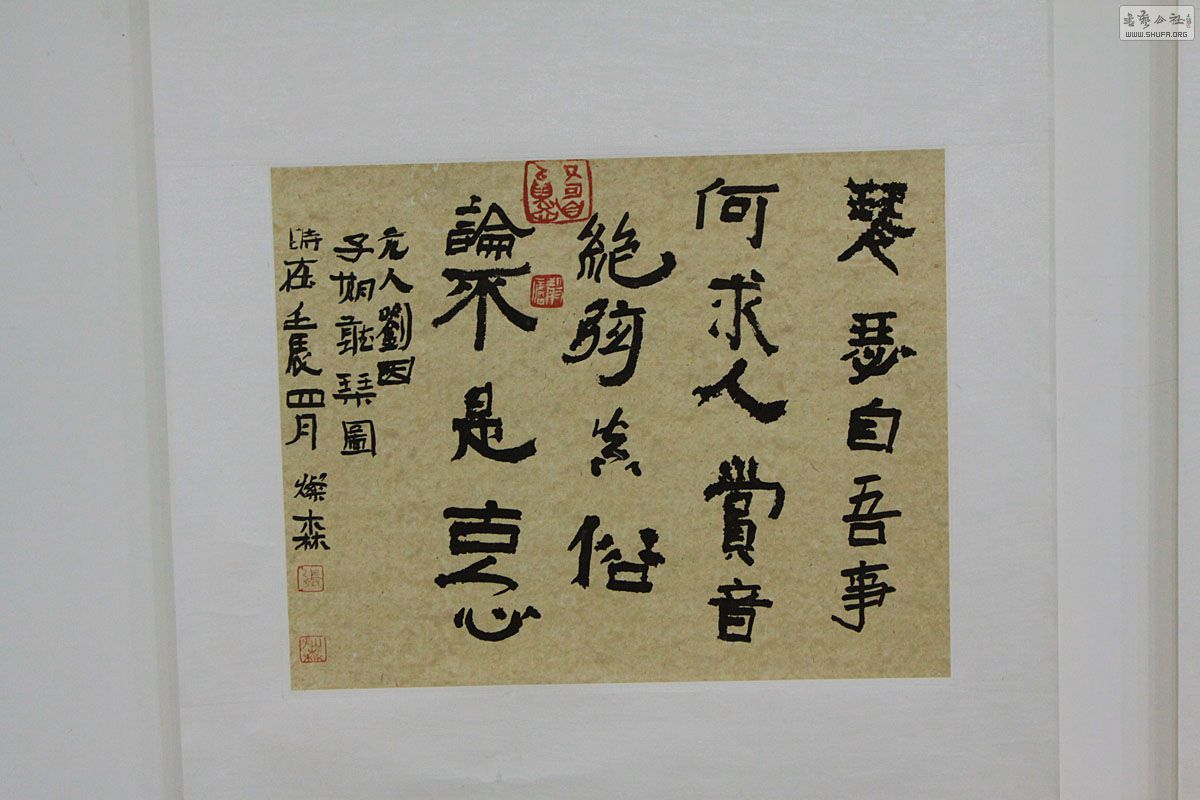 琴瑟自吾事
何求人賞音
絶弦真俗
論不是古人心
元人劉因
子期聽琴圖
時在壬辰四月 燦森
張
書藝公社
WWW.SHUFA.ORG